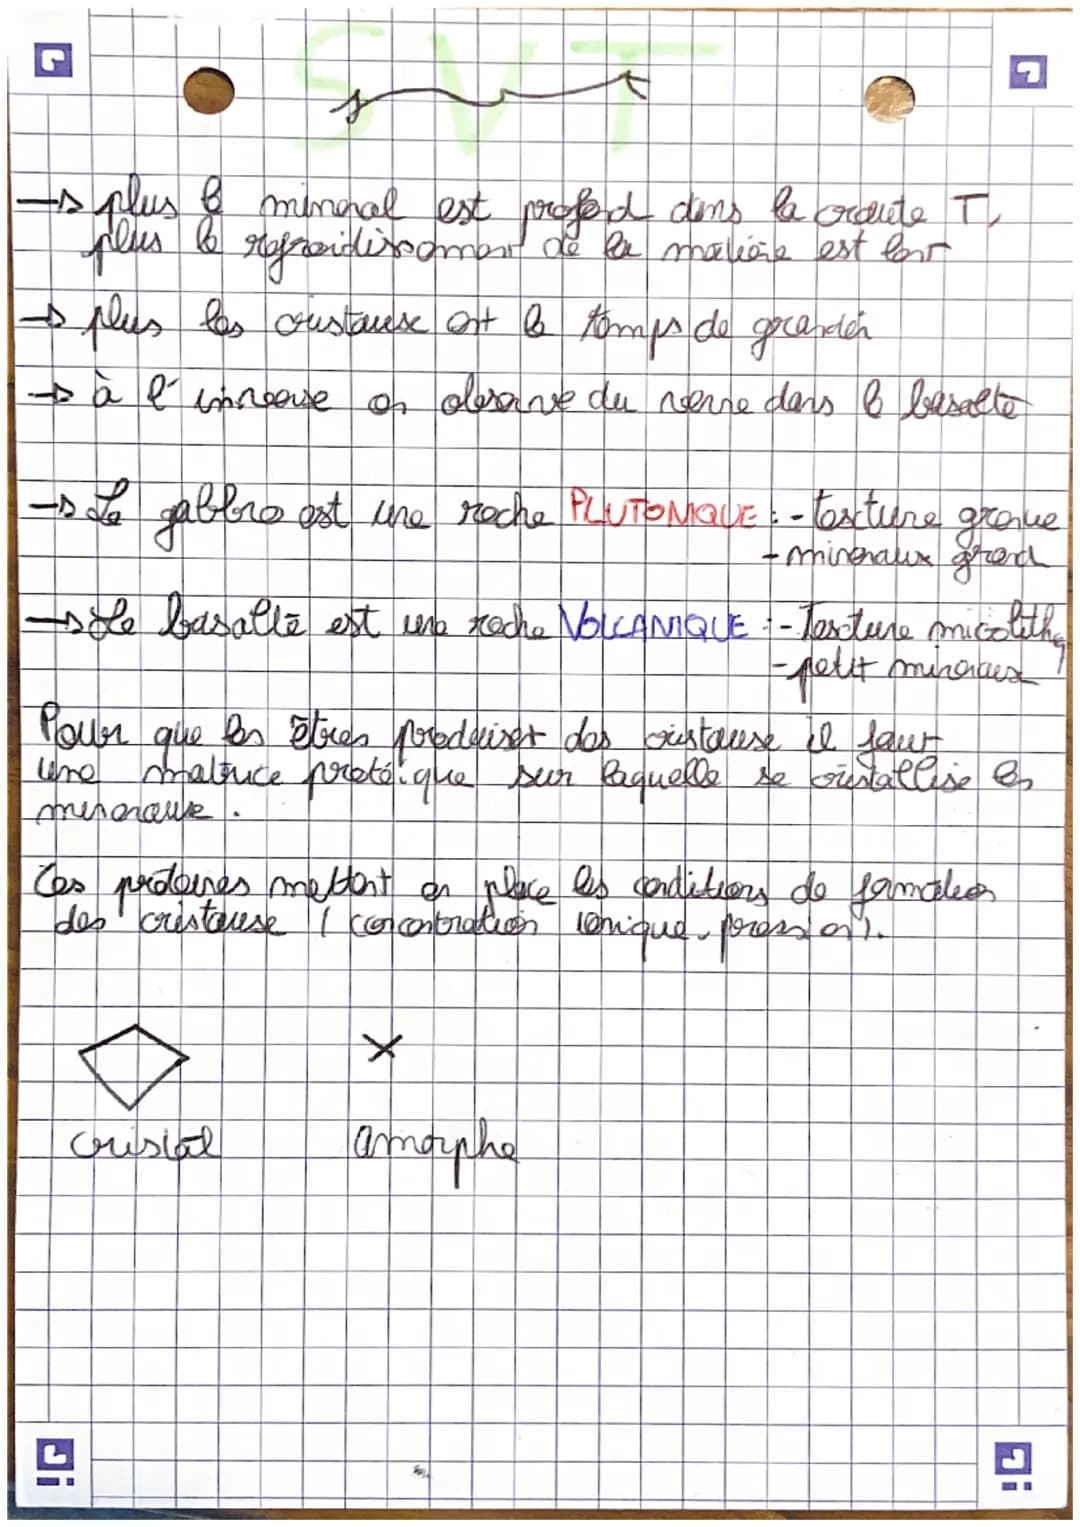 SVT
→ plus le minéral est profond dans la croûte T,
plus le refroidissement de la matière est lent
→ plus les cristaux ont le temps de grandir
→ à l'inverse on observe du verre dans le basalte
→ Le gabbro est une roche PLUTONIQUE : - texture grenue
- minéraux grand
→ Le basalte est une roche VOLCANIQUE : - Texture micolithq
- petit minéraux
Pour que les êtres produiset des cristaux il faut
une matrice protéique sur laquelle se cristallise les
minéraux.
Ces protéines mettent en place les conditions de formation
des cristaux (concentration ionique, pression).
cristal
amorphe